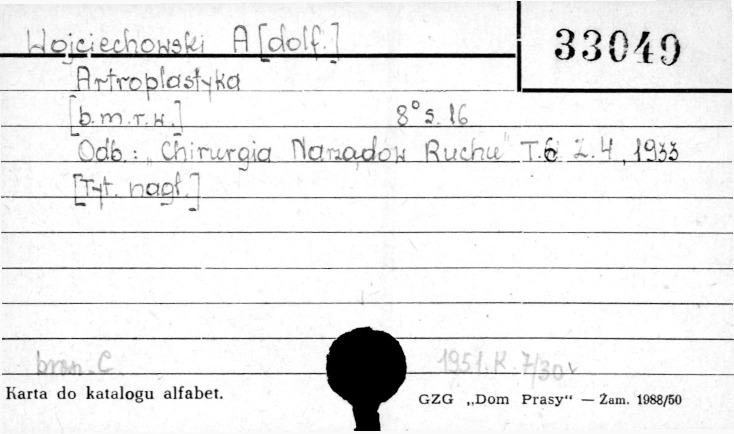 Wojciechowski A[dolf.]
33049
Artroplastyka
[b.m.r.w.] 8° s. 16
Odb.: „Chirurgia Narządów Ruchu" T.6 Z.4, 1933
[Tyt. nagł.]
bram. C. 1951. K. 7/30
Karta do katalogu alfabet.
GZG „Dom Prasy“ — Żam. 1988/50